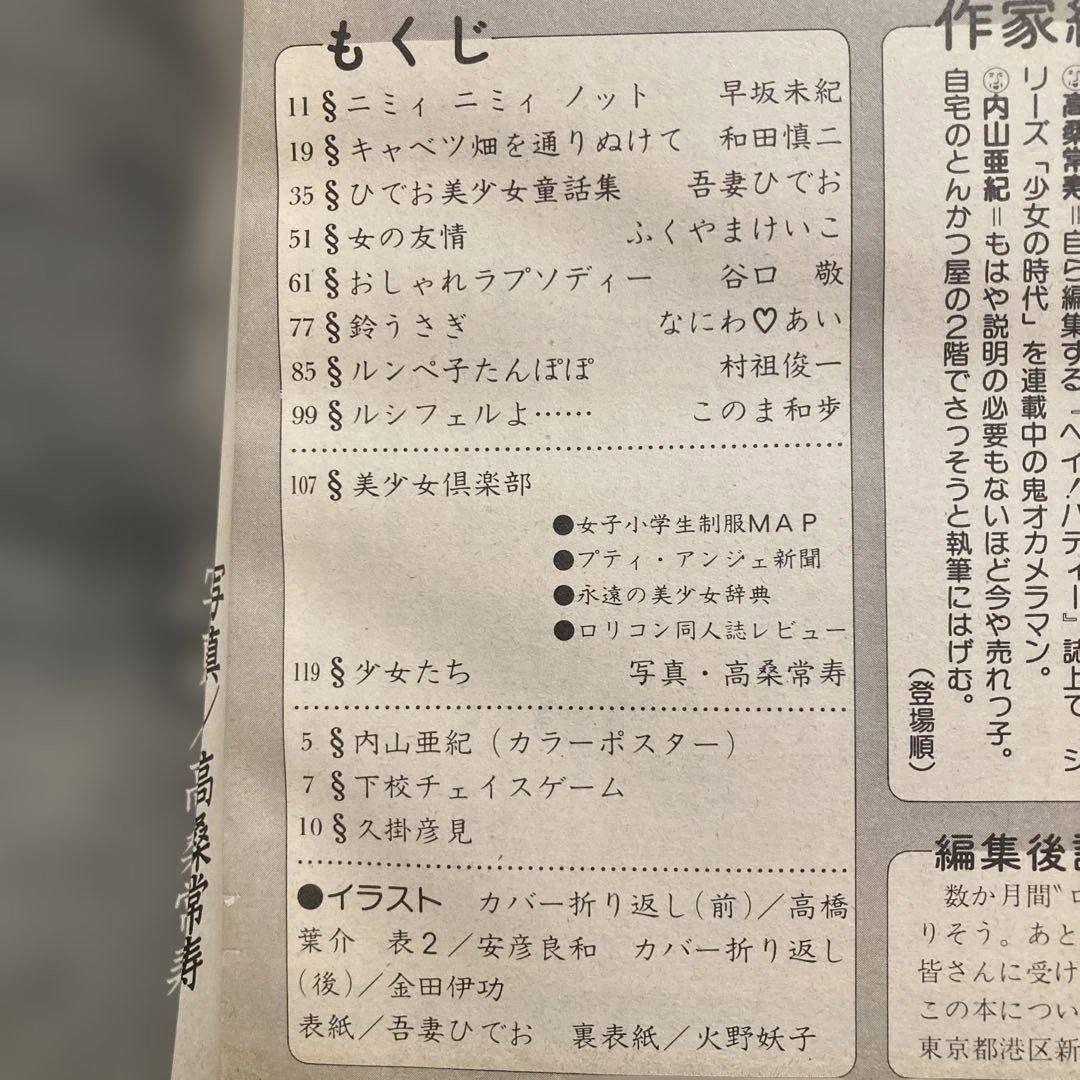 もくじ
11 § ニミィ ニミィ ノット 早坂未紀
19 § キャベツ畑を通りぬけて 和田慎二
35 § ひでお美少女童話集 吾妻ひでお
51 § 女の友情 ふくやまけいこ
61 § おしゃれラプソディー 谷口 敬
77 § 鈴うさぎ なにわ♡あい
85 § ルンペ子たんぽぽ 村祖俊一
99 § ルシフェルよ…… このま和歩
107 § 美少女倶楽部
●女子小学生制服MAP
●プティ・アンジェ新聞
●永遠の美少女辞典
●ロリコン同人誌レビュー
119 § 少女たち 写真・高桑常寿
5 § 内山亜紀(カラーポスター)
7 § 下校チェイスゲーム
10 § 久掛彦見
●イラスト カバー折り返し(前)/高橋
葉介 表2/安彦良和 カバー折り返し
(後)/金田伊功
表紙/吾妻ひでお 裏表紙/火野妖子
作家
高桑常寿=自ら編集する『ヘイ!バディー』誌上で、シ
リーズ「少女の時代」を連載中の鬼オカメラマン。
内山亜紀=もはや説明の必要もないほど今や売れっ子。
自宅のとんかつ屋の2階でさっそうと執筆にはげむ。
(登場順)
編集後記
数か月間〝ロ
りそう。あと
皆さんに受け
この本につい
東京都港区新
写真/高桑常寿